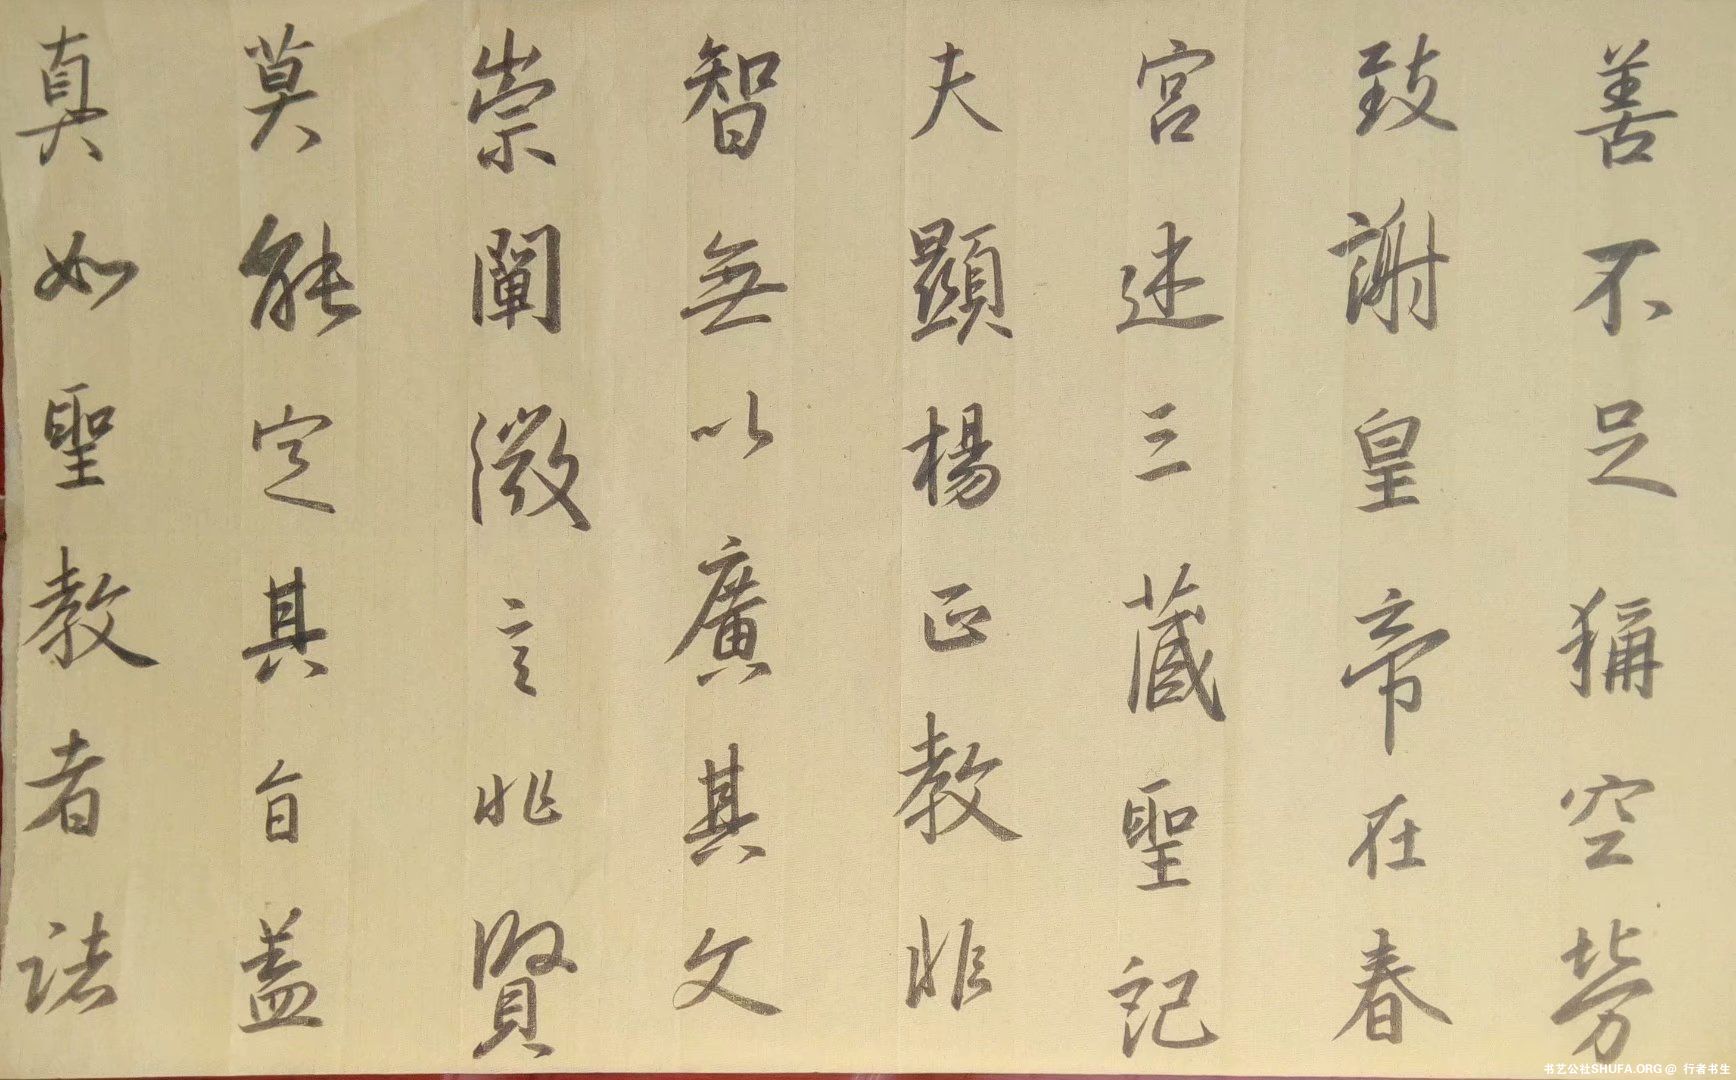 善不足稱空勞
致謝皇帝在春
宮述三藏聖記
夫顯楊正教非
智無以廣其文
崇闡微言非賢
莫能定其旨蓋
真如聖教者諸
书艺公社SHUFA.ORG @ 行者书生